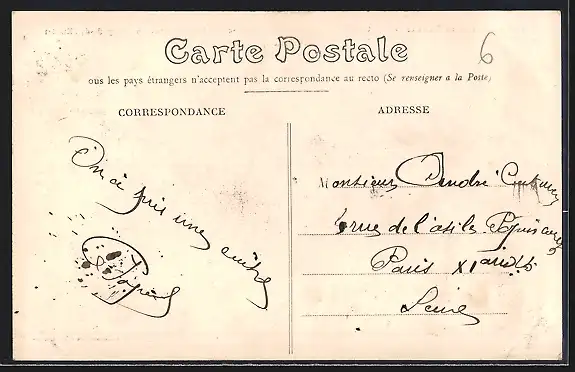 6
Carte Postale
ous les pays étrangers n'acceptent pas la correspondance au recto (Se renseigner a la Poste)
CORRESPONDANCE
ADRESSE
On a pris une
Monsieur André
rue de l'asile Popincourt
Paris XI arrdt
Seine